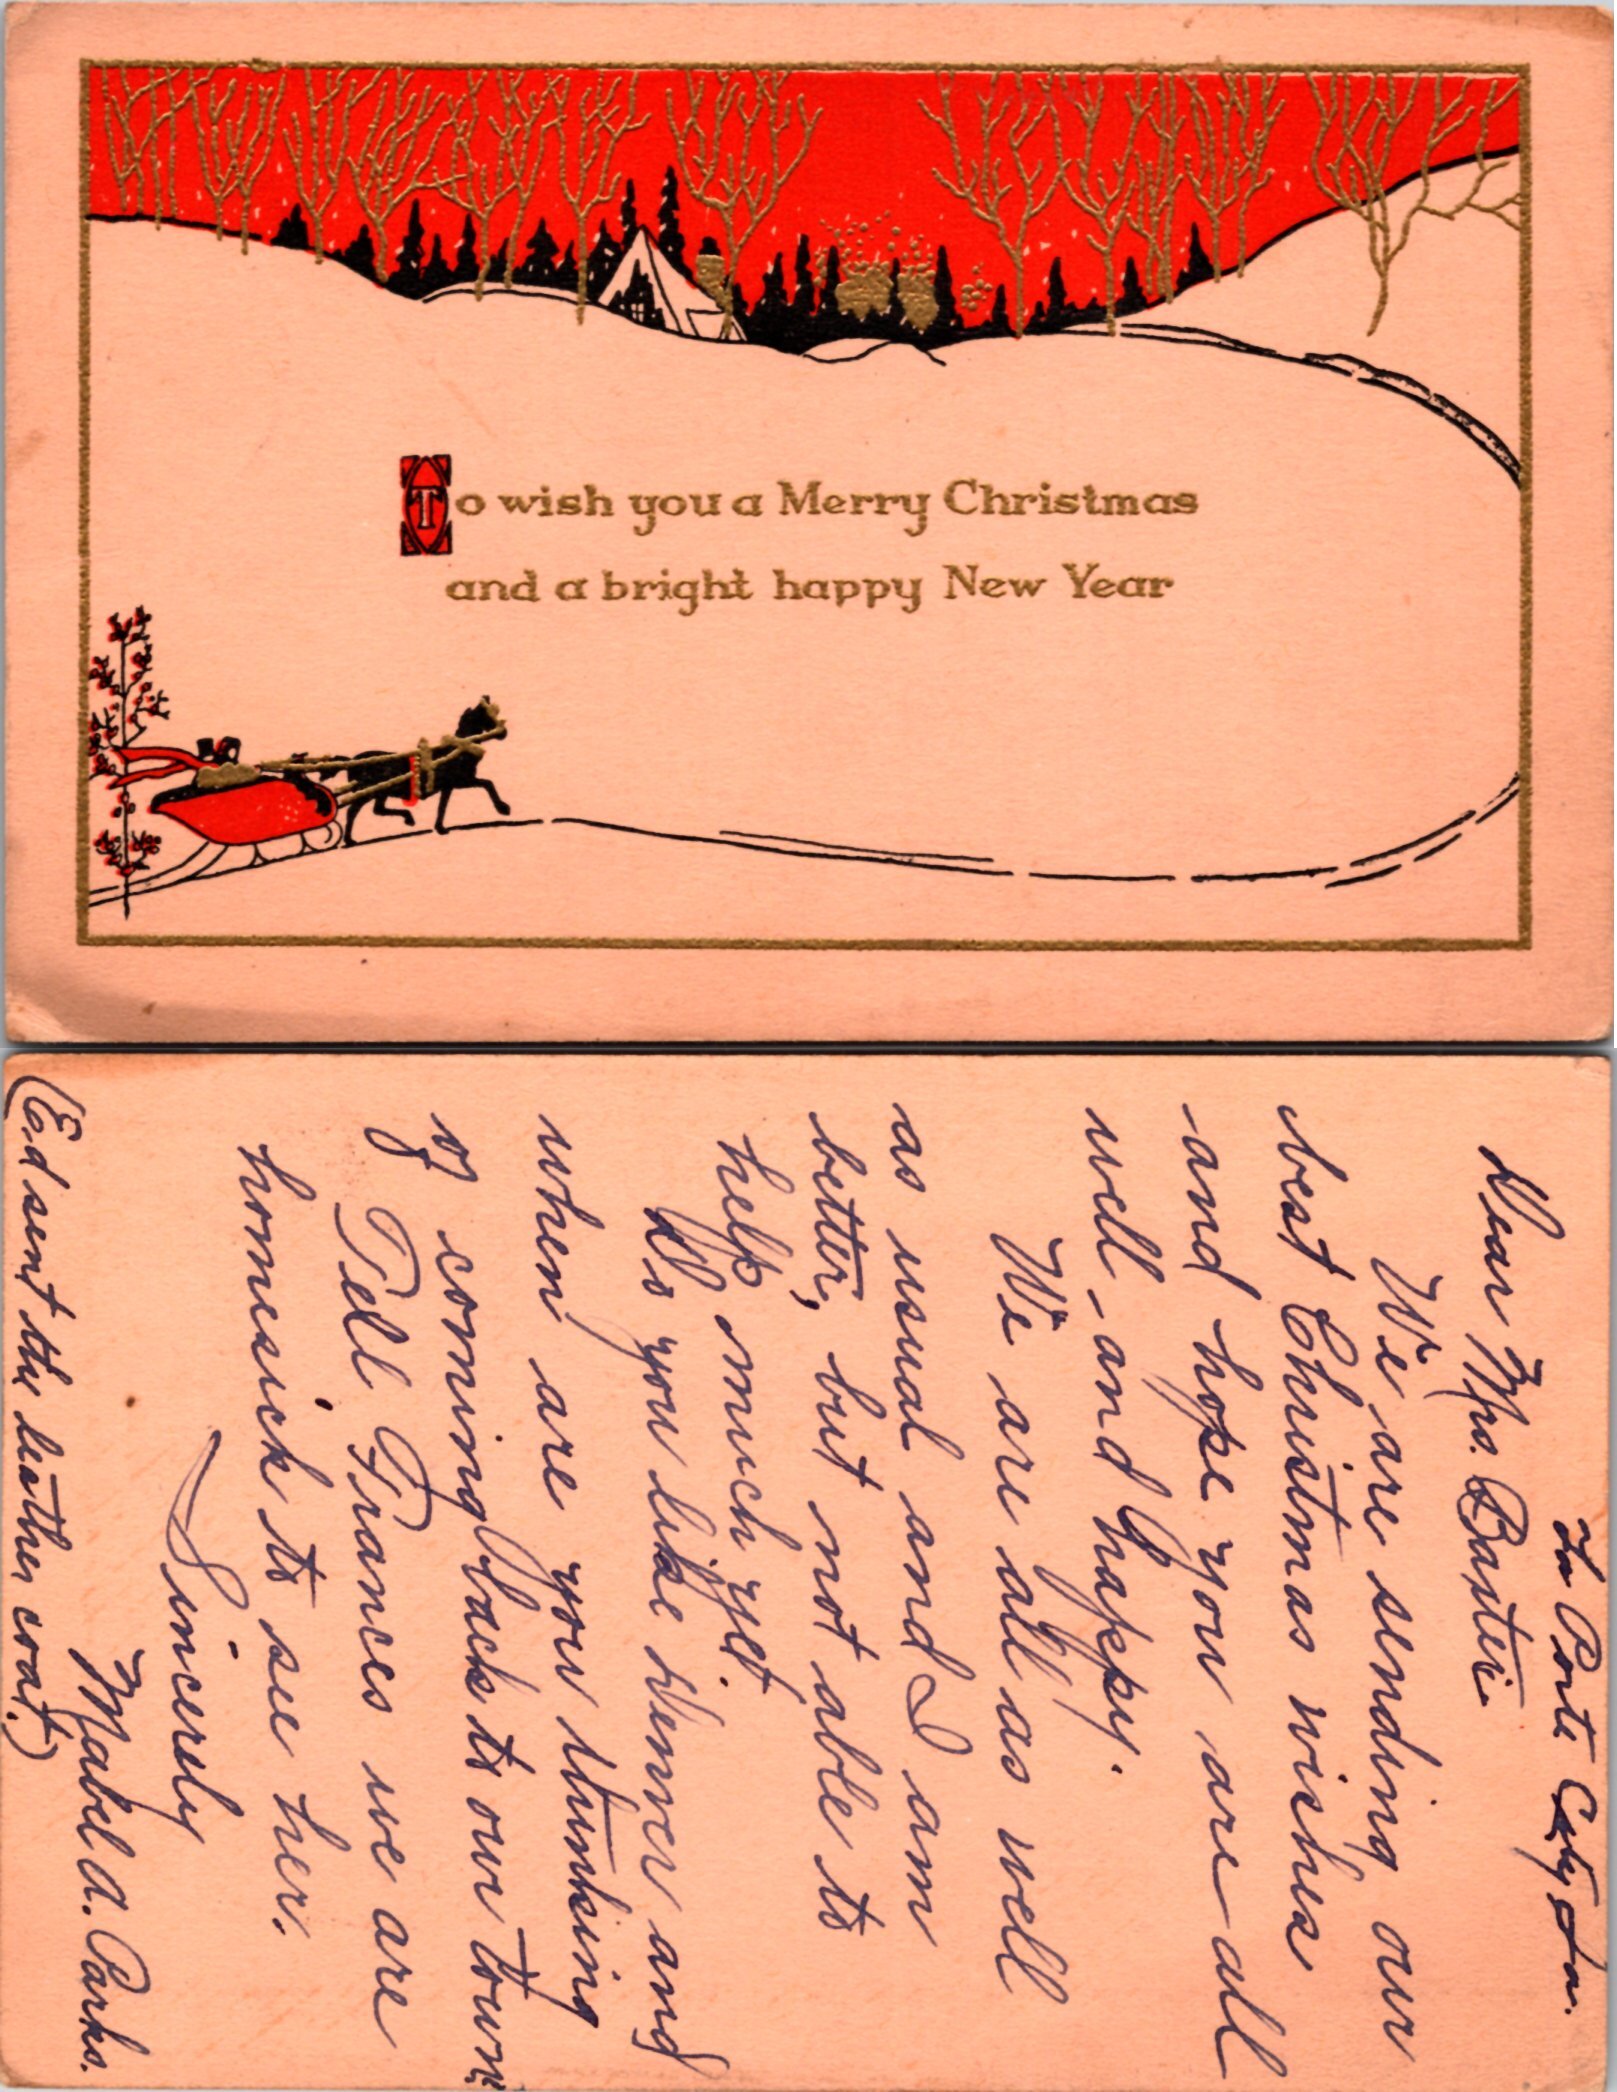 To wish you a Merry Christmas
and a bright happy New Year
La Porte City, Ia.
Dear Mrs. Baxter:
We are sending our
best Christmas wishes
and hope you are all
well and happy.
We are all as well
as usual and I am
better, but not able to
help much yet.
Do you like Denver and
when are you thinking
of coming back to our town?
Tell Frances we are
homesick to see her.
Sincerely
Mabel A. Parks.
(Ed sent the leather coat.)